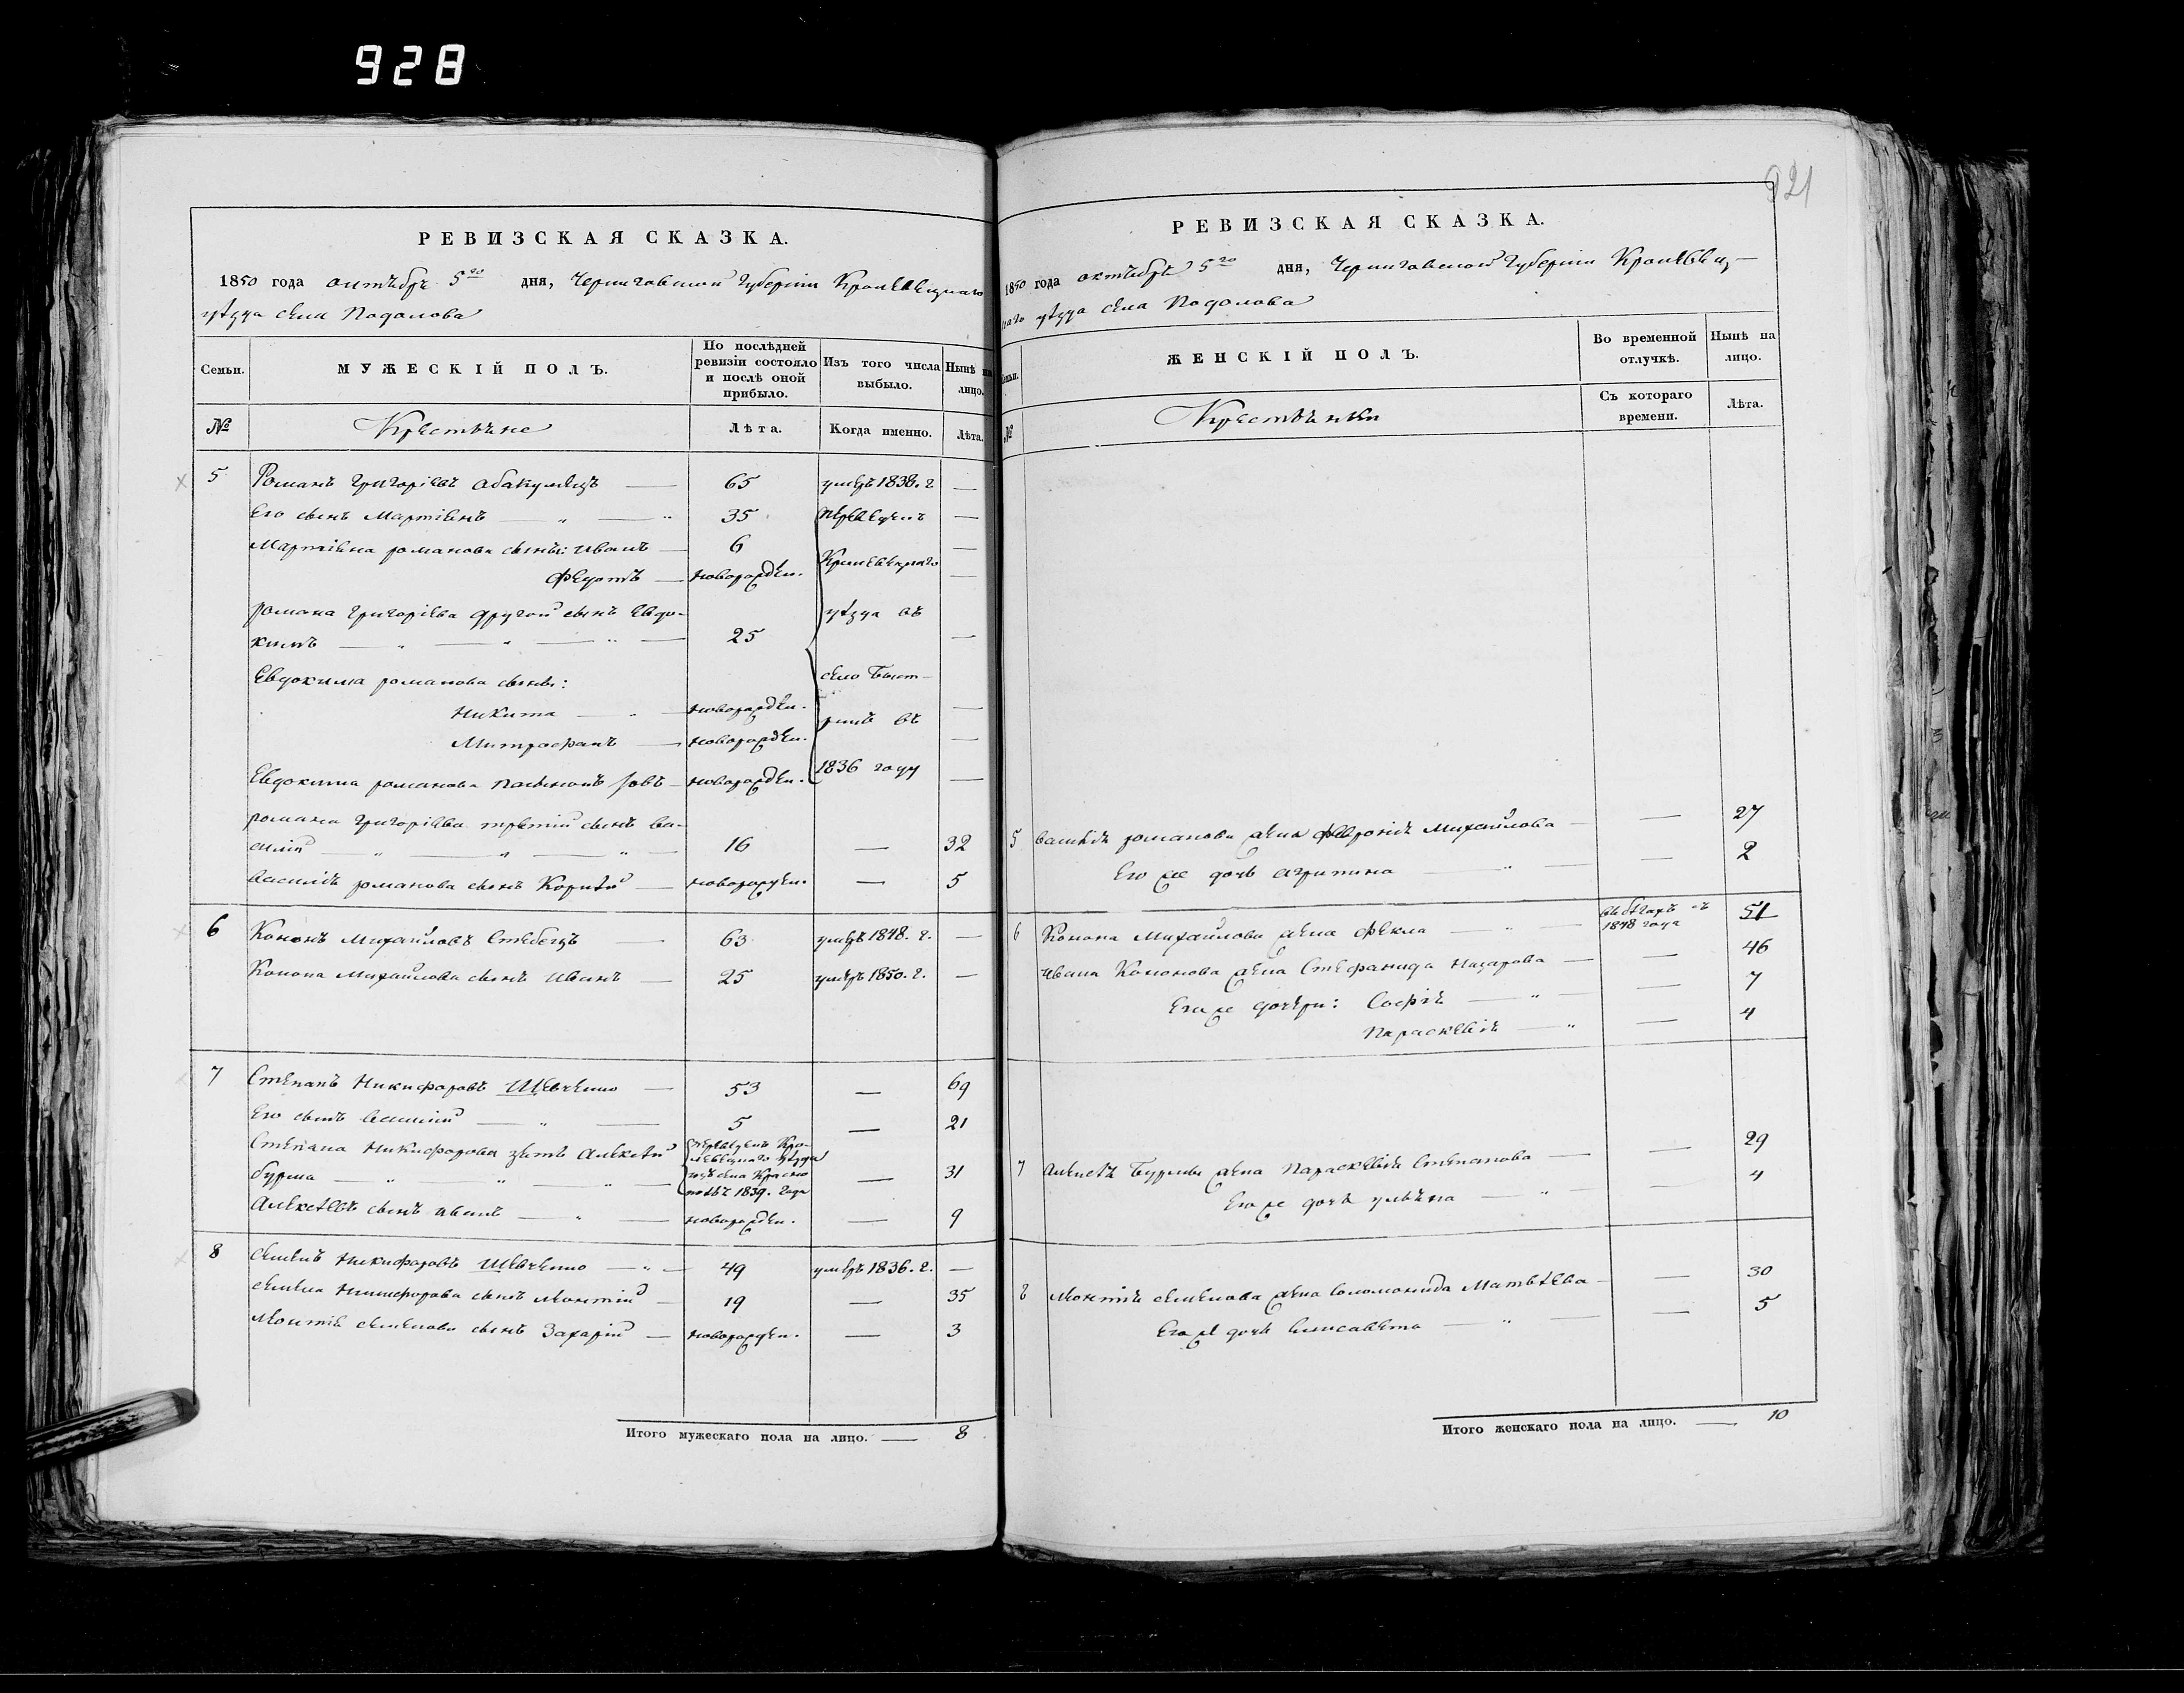 928
921
РЕВИЗСКАЯ СКАЗКА.
1850 года октября 5го дня, Черниговской Губерніи Кролевецкаго
уѣзда села Подолова
Семьи. МУЖЕСКІЙ ПОЛЪ. По послѣдней ревизіи состояло и послѣ оной прибыло. Изъ того числа выбыло. Нынѣ на лицо.
№ Крестьяне Лѣта. Когда именно. Лѣта.
5 Романъ Григорьевъ Абакумецъ — 65 умеръ 1838. г. —
Его сынъ Мартинъ — „ — „ 35 переведенъ —
Мартина романова сыны: иванъ — 6 Кролевецкаго —
Федотъ — новорожден. —
романа Григорьева другой сынъ Евдо- уѣзда въ
кимъ — „ — „ — „ — 25 —
Евдокима романова сыны: село Быст-
Никита — „ — новорожден. —
Митрофанъ — новорожден. рикъ въ —
Евдокима романова пасынокъ Іовъ — новорожден. 1836 году —
романа Григорьева третій сынъ ва-
силій — „ — „ — „ — 16 — 32
василія романова сынъ Корнѣй — новорожден. — 5
6 Кононъ Михайловъ Стебецъ — 63 умеръ 1848. г. —
Конона Михайлова сынъ иванъ — 25 умеръ 1850. г. —
7 Степанъ Никифоровъ Шевченко — 53 — 69
Его сынъ василій — „ — 5 — 21
Степана Никифорова зять алексѣй переведенъ Кро-
левецкаго уѣзда
бурма — „ — „ — „ — изъ села Красно — 31
1839. года
алексѣевъ сынъ иванъ — „ — новорожден. — 9
8 семенъ Никифоровъ Шевченко — „ — 49 умеръ 1836. г. —
семена Никифорова сынъ Леонтій — 19 — 35
Леонтія семенова сынъ Захарій — новорожден. — 3
Итого мужескаго пола на лицо. — 8
РЕВИЗСКАЯ СКАЗКА.
1850 года октября 5го дня, Черниговской Губерніи Кролевец-
каго уѣзда села Подолова
Семьи. ЖЕНСКІЙ ПОЛЪ. Во временной отлучкѣ. Нынѣ на лицо.
№ Крестьянки Съ котораго времени. Лѣта.
5 василія романова жена феврония Михайлова — — 27
Его же дочь агрипина — „ — — 2
6 Конона Михайлова жена фекла — „ — въ бѣгахъ съ 1848 года 51
ивана Кононова жена Стефанида Назарова — — 46
Его же дочери: Софія — „ — — 7
Параскевія — „ — 4
7 алексѣя Бурмы жена Параскевія Степанова — — 29
Его же дочь ульяна — „ — — 4
8 Леонтія семенова жена соломонида Матвѣева — — 30
Его же дочь елисавета — „ — — 5
Итого женскаго пола на лицо. — 10